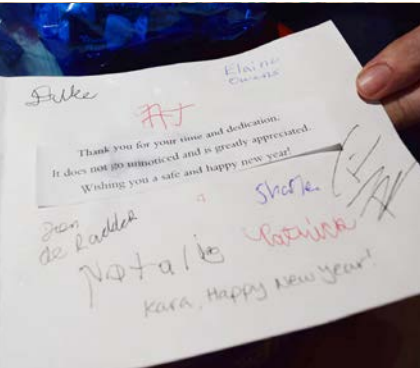 Duke
Elaine
Owens
AJ
Thank you for your time and dedication.
It does not go unnoticed and is greatly appreciated.
Wishing you a safe and happy new year!
de Radder
Natalie
Patrick
Kara, Happy New Year!